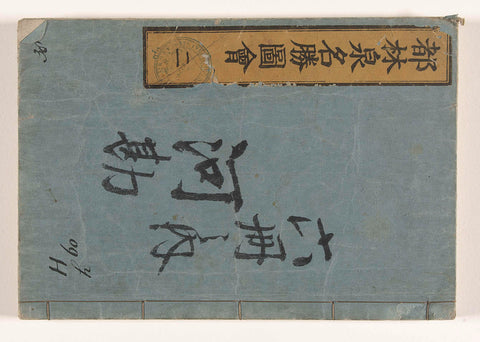 都林泉名勝圖會
二
六冊内
河勘